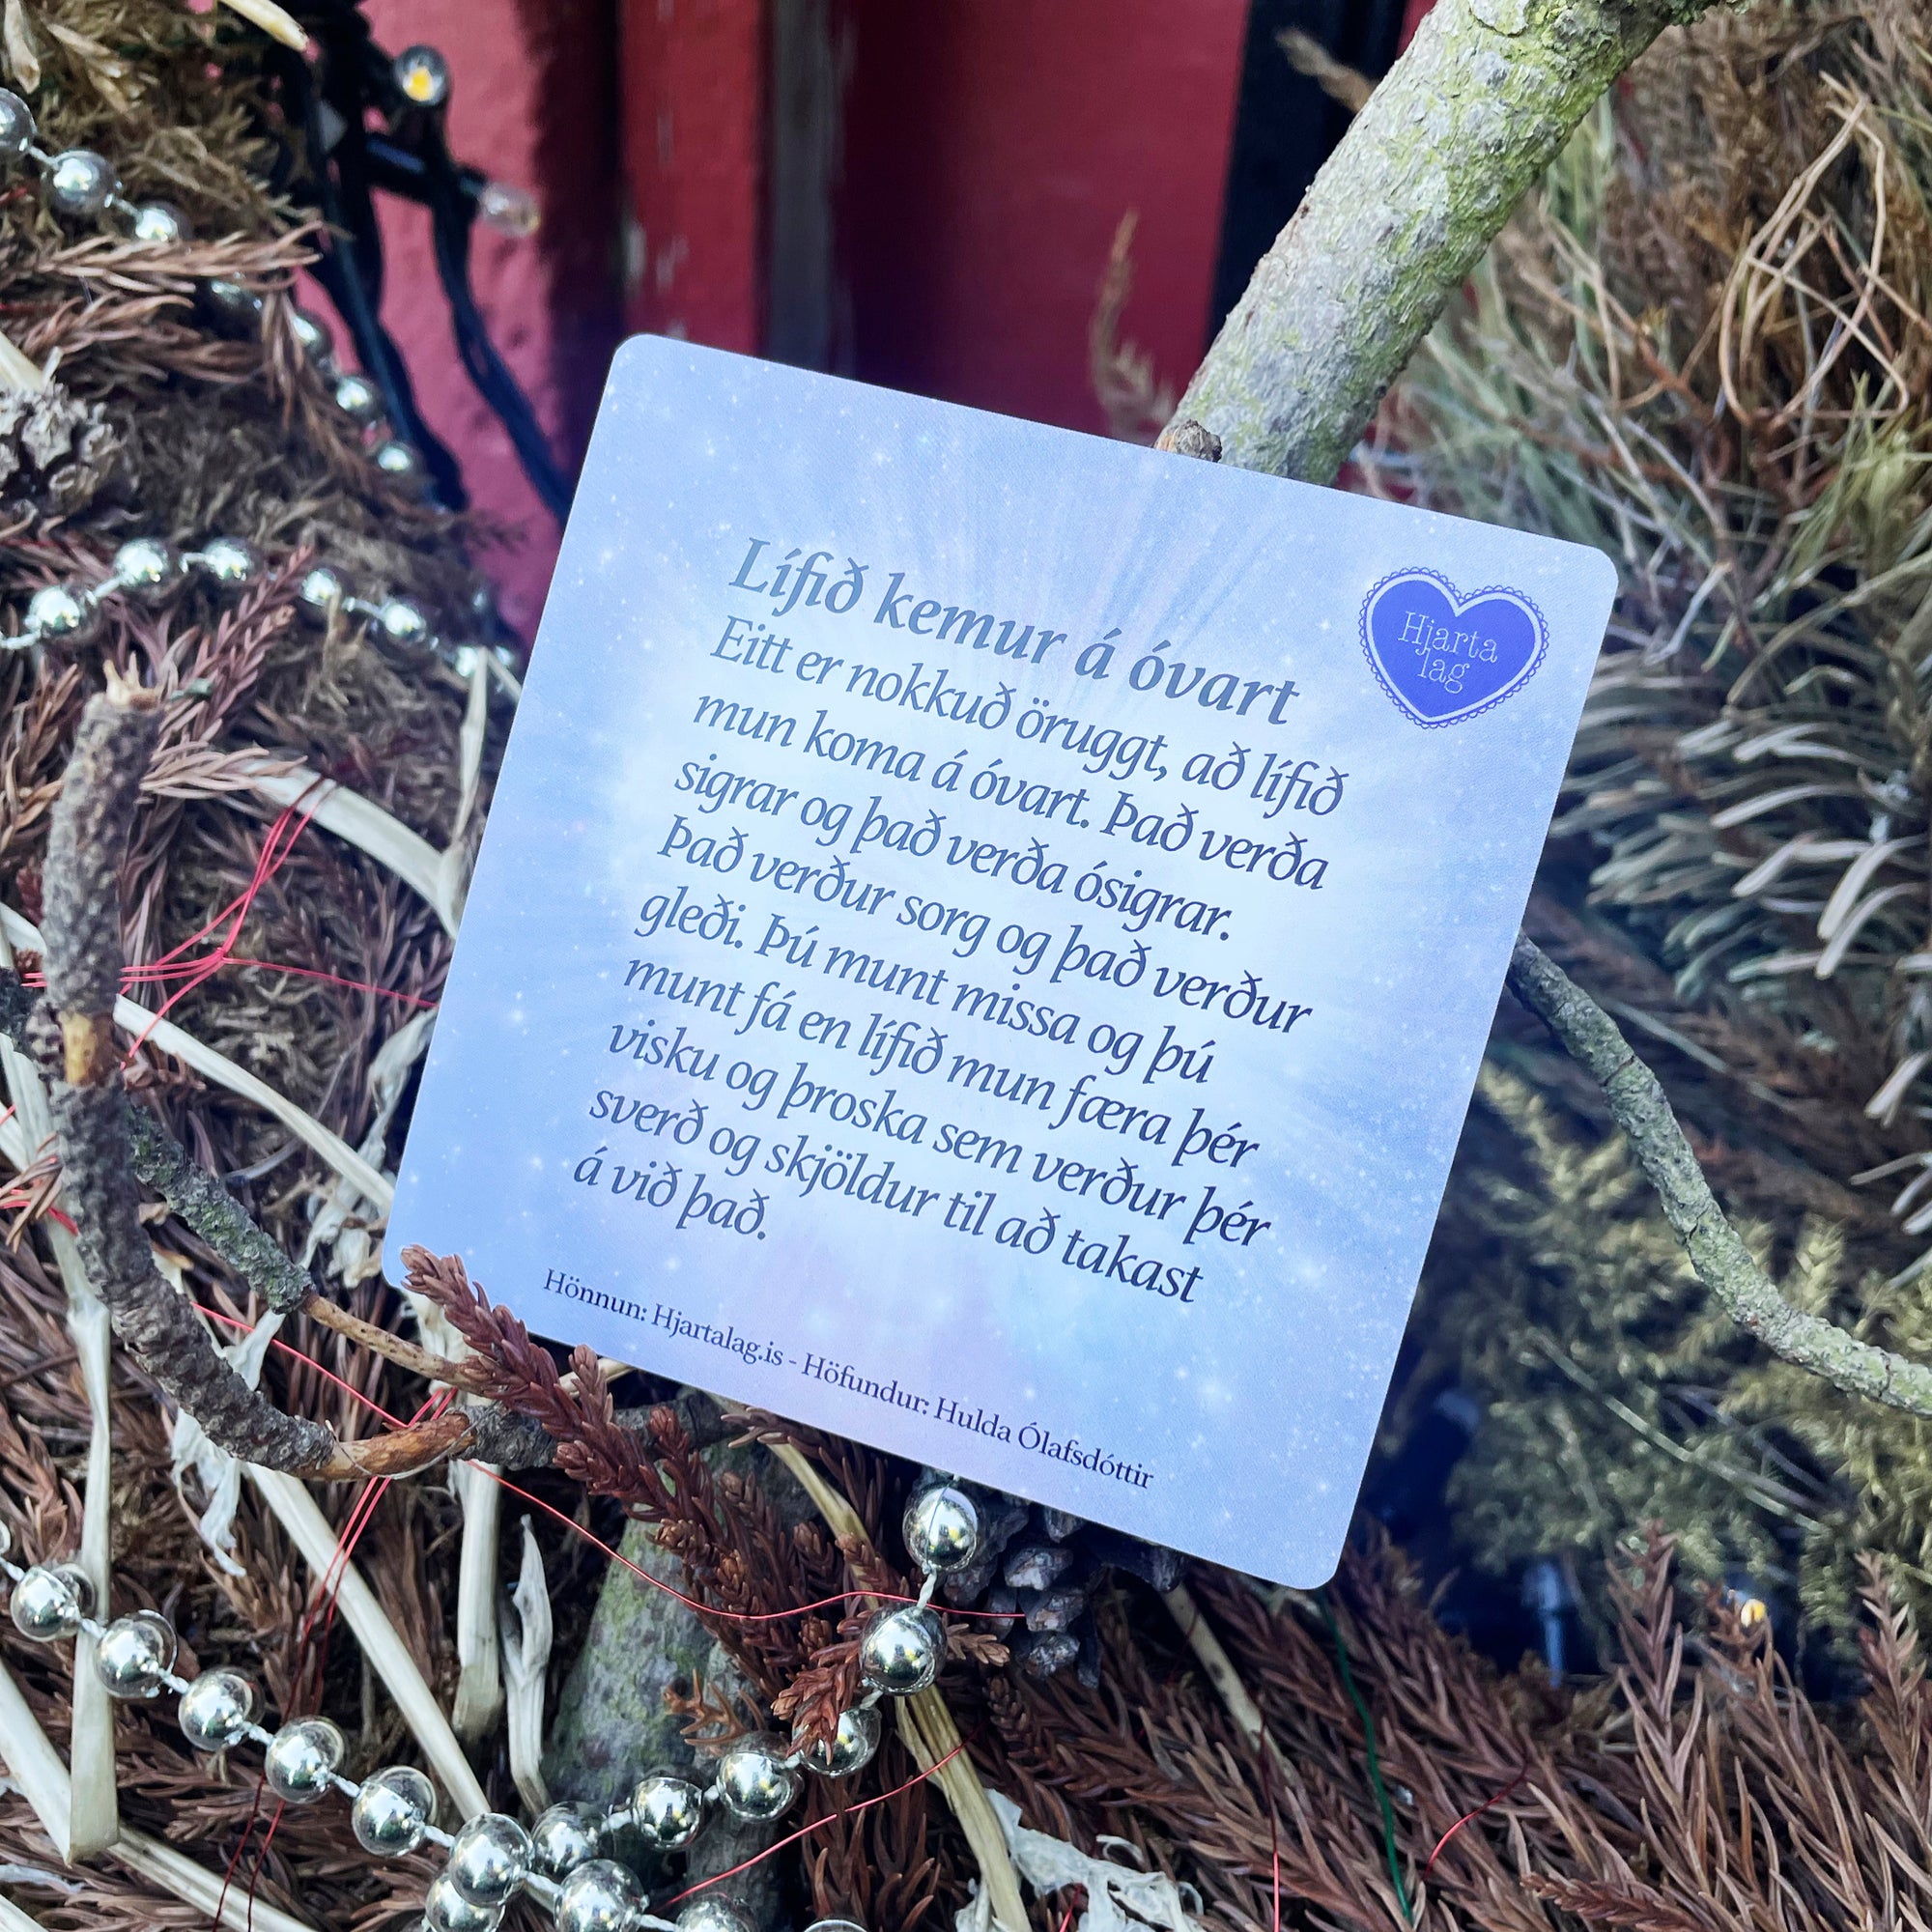 Lífið kemur á óvart
Hjarta
lag
Eitt er nokkuð öruggt, að lífið
mun koma á óvart. Það verða
sigrar og það verða ósigrar.
Það verður sorg og það verður
gleði. Þú munt missa og þú
munt fá en lífið mun færa þér
visku og þroska sem verður þér
sverð og skjöldur til að takast
á við það.
Hönnun: Hjartalag.is - Höfundur: Hulda Ólafsdóttir